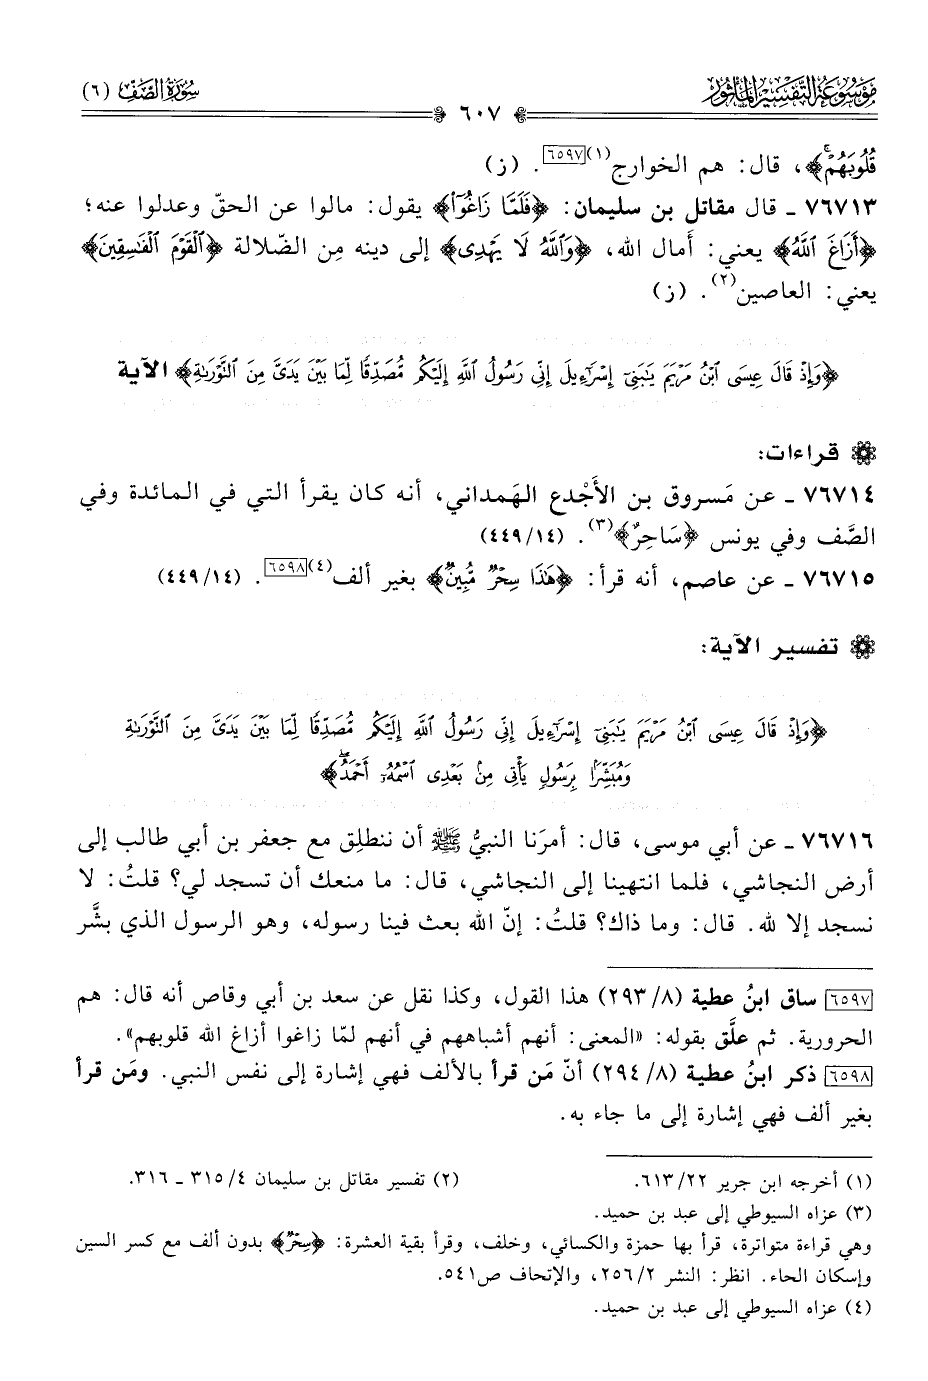 مَوْسُوعَة التَّفْسِير المَأْثُور
٦٠٧
سُورَةُ الصَّفِّ (٦)
قُلُوبَهُمْ﴾، قال: هم الخوارج(١)[٦٥٩٧]. (ز)
٧٦٧١٣ ـ قال مقاتل بن سليمان: ﴿فَلَمَّا زَاغُوٓا﴾ يقول: مالوا عن الحقّ وعدلوا عنه؛
﴿أَزَاغَ ٱللَّهُ﴾ يعني: أمال الله، ﴿وَٱللَّهُ لَا يَهْدِى﴾ إلى دينه مِن الضّلالة ﴿ٱلْقَوْمَ ٱلْفَٰسِقِينَ﴾
يعني: العاصين(٢). (ز)
﴿وَإِذْ قَالَ عِيسَى ٱبْنُ مَرْيَمَ يَٰبَنِىٓ إِسْرَٰٓءِيلَ إِنِّى رَسُولُ ٱللَّهِ إِلَيْكُم مُّصَدِّقًا لِّمَا بَيْنَ يَدَىَّ مِنَ ٱلتَّوْرَىٰةِ﴾ الآية
قراءات:
٧٦٧١٤ ـ عن مَسروق بن الأَجْدع الهَمداني، أنه كان يقرأ التي في المائدة وفي
الصَّف وفي يونس ﴿سَاحِرٌ﴾(٣). (٤٤٩/١٤)
٧٦٧١٥ ـ عن عاصم، أنه قرأ: ﴿هَٰذَا سِحْرٌ مُّبِينٌ﴾ بغير ألف(٤)[٦٥٩٨]. (٤٤٩/١٤)
تفسير الآية:
﴿وَإِذْ قَالَ عِيسَى ٱبْنُ مَرْيَمَ يَٰبَنِىٓ إِسْرَٰٓءِيلَ إِنِّى رَسُولُ ٱللَّهِ إِلَيْكُم مُّصَدِّقًا لِّمَا بَيْنَ يَدَىَّ مِنَ ٱلتَّوْرَىٰةِ
وَمُبَشِّرًۢا بِرَسُولٍ يَأْتِى مِنۢ بَعْدِى ٱسْمُهُۥٓ أَحْمَدُ﴾
٧٦٧١٦ ـ عن أبي موسى، قال: أمرَنا النبيُّ ﷺ أن ننطلِق مع جعفر بن أبي طالب إلى
أرض النجاشي، فلما انتهينا إلى النجاشي، قال: ما منعك أن تسجد لي؟ قلتُ: لا
نسجد إلا لله. قال: وما ذاك؟ قلتُ: إنّ الله بعث فينا رسوله، وهو الرسول الذي بشَّر
[٦٥٩٧] ساق ابنُ عطية (٢٩٣/٨) هذا القول، وكذا نقل عن سعد بن أبي وقاص أنه قال: هم
الحرورية. ثم علَّق بقوله: «المعنى: أنهم أشباههم في أنهم لمّا زاغوا أزاغ الله قلوبهم».
[٦٥٩٨] ذكر ابنُ عطية (٢٩٤/٨) أنّ مَن قرأ بالألف فهي إشارة إلى نفس النبي. ومَن قرأ
بغير ألف فهي إشارة إلى ما جاء به.
(١) أخرجه ابن جرير ٦١٣/٢٢. (٢) تفسير مقاتل بن سليمان ٣١٥/٤ ـ ٣١٦.
(٣) عزاه السيوطي إلى عبد بن حميد.
وهي قراءة متواترة، قرأ بها حمزة والكسائي، وخلف، وقرأ بقية العشرة: ﴿سِحْرٌ﴾ بدون ألف مع كسر السين
وإسكان الحاء. انظر: النشر ٢٥٦/٢، والإتحاف ص٥٤١.
(٤) عزاه السيوطي إلى عبد بن حميد.